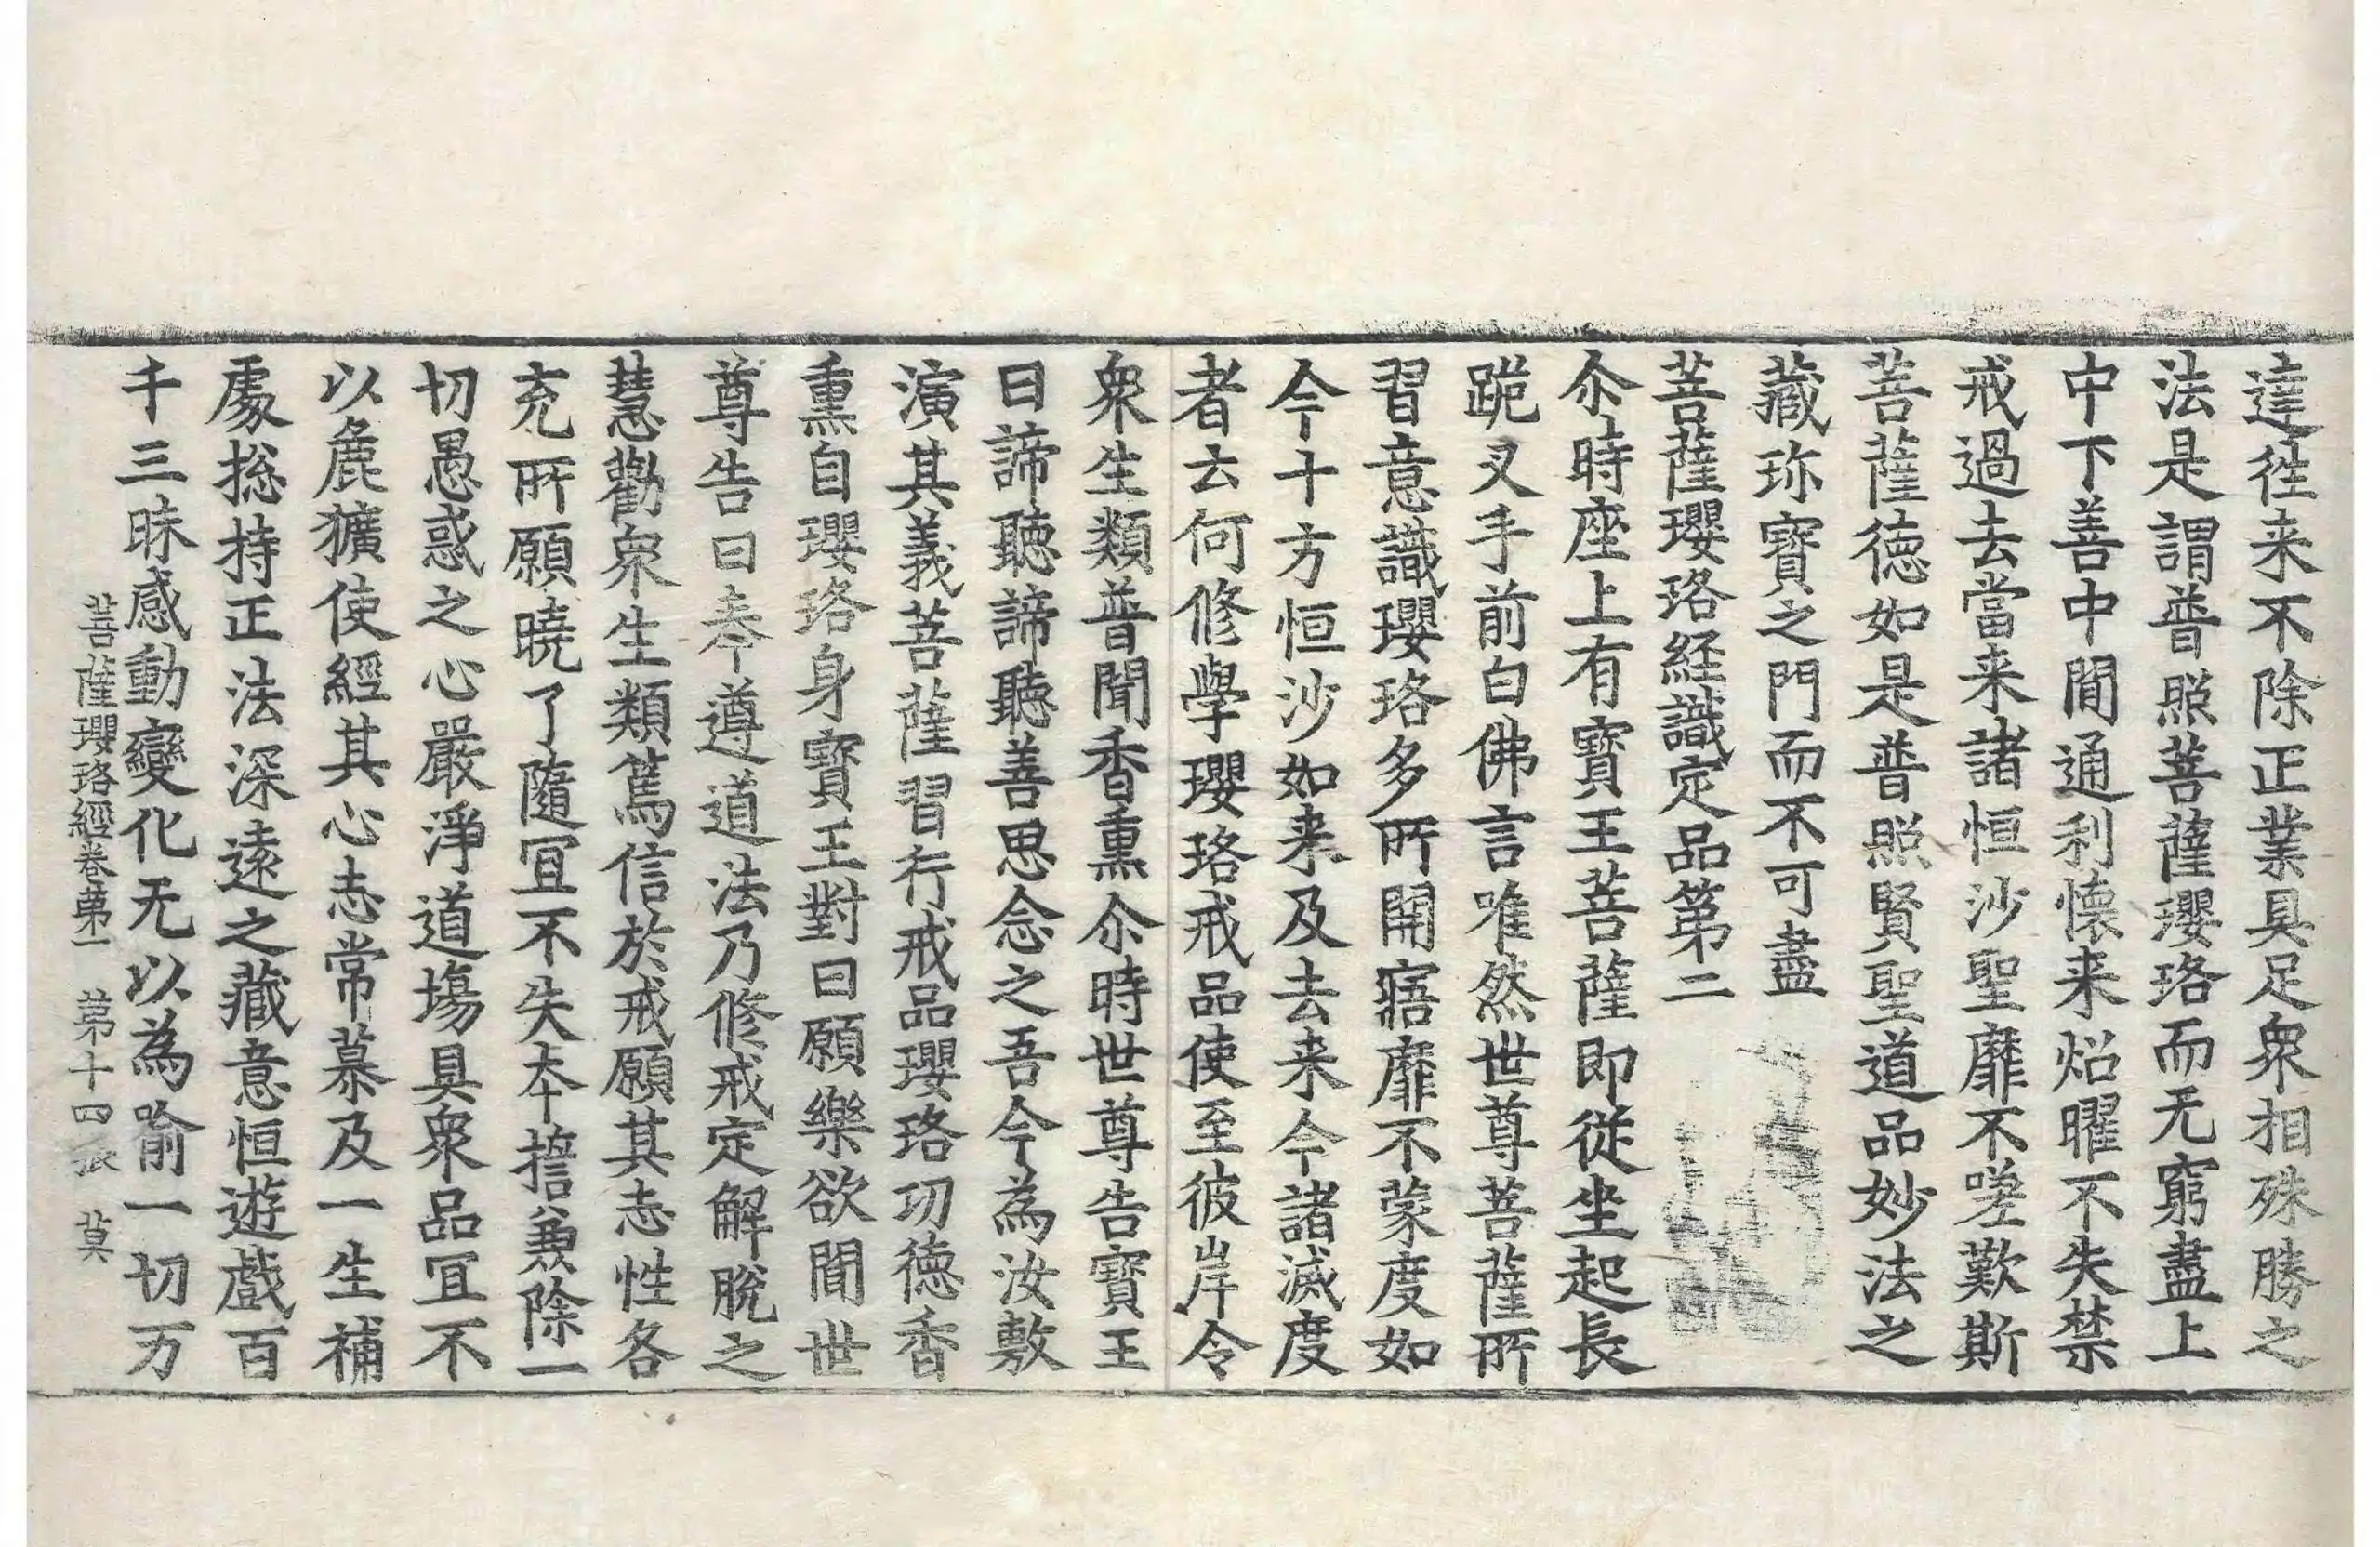 達徃来不除正業具足衆相殊勝之
法是謂普照菩薩瓔珞而无窮盡上
中下善中間通利懷来炤曜不失禁
戒過去當来諸恒沙聖靡不嗟歎斯
菩薩德如是普照賢聖道品妙法之
藏珎寶之門而不可盡
菩薩瓔珞経識定品第二
尒時座上有寶王菩薩即從坐起長
跪叉手前白佛言唯然世尊菩薩所
習意識瓔珞多所開寤靡不蒙度如
今十方恒沙如来及去来今諸滅度
者云何修學瓔珞戒品使至彼岸令
衆生類普聞香熏尒時世尊告寶王
曰諦聽諦聽善思念之吾今為汝敷
演其義菩薩習行戒品瓔珞功德香
熏自瓔珞身寶王對曰願樂欲聞世
尊告曰奉遵道法乃修戒定解脫之
慧勸衆生類篤信於戒願其志性各
充所願曉了隨冝不失夲擔兼除一
切愚惑之心嚴淨道場具衆品冝不
以麁獷使經其心志常慕及一生補
處捴持正法深遠之藏意恒遊戲百
千三昧感動變化无以為喻一切万
菩薩瓔珞經卷第一 第十四張 莫